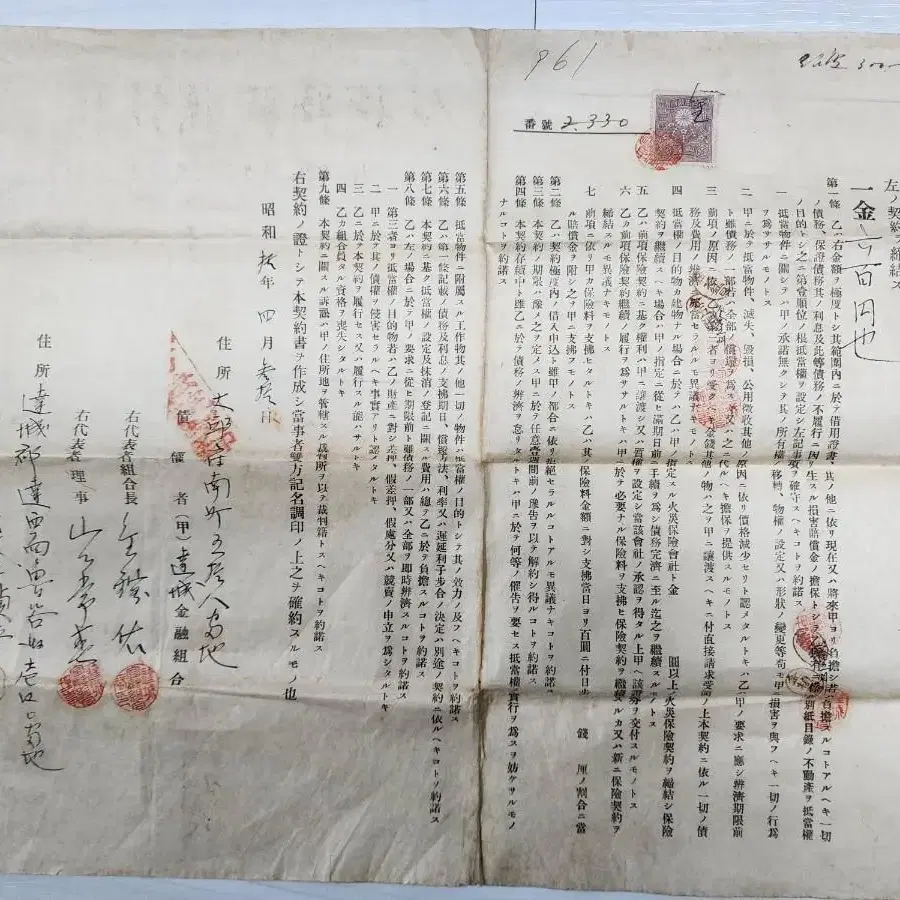 961
番號 2,330
左ノ契約ヲ締結ス
一金六百円也
第一條 乙ハ右金額ヲ極度トシ其範圍內ニ於テ借用證書、其ノ他ニ依リ現在又ハ將來甲ヨリ負擔シ若ハ負擔スルコトアルヘキ一切
ノ債務、保證債務其ノ利息及此等債務ノ不履行ニ因リ生スル損害賠償金ノ擔保トシテ乙
別紙目錄ノ不動產ヲ抵當權
ノ目的トシ之ニ第壹順位ノ根抵當權ヲ設定シ左記事項ヲ確守スヘキコトヲ約諾ス
一 抵當物件ニ關シテハ甲ノ承諾無クシテ其ノ所有權ノ移轉、物權ノ設定又ハ形狀ノ變更等苟モ甲ニ損害ヲ與フヘキ一切ノ行爲
ヲ爲ササルモノトス
二 甲ニ於テ抵當物件、滅失、毀損、公用徵收其他ノ原因ニ依リ價格減少セリト認メタルトキハ乙ハ甲ノ要求ニ應シ辨濟期限前
ト雖債務ノ一部若ハ全部ノ償還ヲ爲スカ又ハ之ニ代ルヘキ擔保ヲ提供スルモノトス
三 前項ノ原因ニ依リ乙カ第三者ヨリ受クヘキ金錢其他ノ物ハ之ヲ甲ニ讓渡スヘキニ付直接請求受領ノ上本契約ニ依ル一切ノ債
務及費用ノ辨濟ニ充當セラルルモ異議ナキモノトス
四 抵當權ノ目的物カ建物ナル場合ニ於テハ乙ハ甲ノ指定スル火災保險會社ト金 圓以上ノ火災保險契約ヲ締結シ保險
契約ヲ繼續スヘキ場合ハ甲ノ指定ニ從ヒ滿期日前ニ手續ヲ爲シ債務完濟ニ至ル迄之ヲ繼續スルモノトス
五 乙ハ前項保險契約ニ基ク權利ハ甲ニ讓渡シ又ハ質權ヲ設定シ當該會社ノ承認ヲ得タル上甲ニ該證券ヲ交付スルモノトス
六 乙カ前項保險契約ノ繼續ノ履行ヲ爲ササルトキハ甲ニ於テ必要ナル保險料ヲ支拂ヒ保險契約ヲ繼續シ又ハ新ニ保險契約ヲ
締結スルモ異議ナキモノトス
七 前項ニ依リ甲カ保險料ヲ支拂ヒタルトキハ乙ハ其ノ保險料金額ニ對シ支拂當日ヨリ百圓ニ付日步 錢 厘ノ割合ニ當
ル賠償金ヲ附シ之ヲ甲ニ支拂フモノトス
第二條 乙ハ契約極度內ノ借入申込ト雖甲ノ都合ニ依リ拒絕セラルルコトアルモ異議ナキコトヲ約諾ス
第三條 本契約ノ期限ハ豫メ之ヲ定メス甲ニ於テ任意壹週間前ノ豫告ヲ以テ解約シ得ルコトヲ約諾ス
第四條 本契約存續中ト雖乙ニ於テ債務ノ辨濟ヲ怠リタルトキハ甲ニ於テ何等ノ催告ヲ要セス抵當權ノ實行ヲ爲スヲ妨ケサルモノ
ナルコトヲ約諾ス
第五條 抵當物件ニ附屬スル工作物其ノ他一切ノ物件ハ抵當權ノ目的トシテ其ノ效力ノ及フヘキコトヲ約諾ス
第六條 乙ハ第一條記載ノ債務及利息ノ支拂期日、償還方法、利率又ハ遲延利子步合ノ決定ハ別途ノ契約ニ依ルヘキコトヲ約諾ス
第七條 本契約ニ基ク抵當權ノ設定及抹消ノ登記ニ關スル費用ハ總テ乙ニ於テ負擔スルコトヲ約諾ス
第八條 乙ハ左ノ場合ニ於テ甲ノ要求ニ從ヒ期限前ト雖債務ノ一部又ハ全部ヲ即時辨濟スルコトヲ約諾ス
一 第三者ヨリ抵當權ノ目的物若ハ乙ノ財產ニ對シ差押、假差押、假處分又ハ競賣ノ申立ヲ爲シタルトキ
二 甲ニ於テ其ノ債權ヲ侵害セラルヘキ事實アリト認メタルトキ
三 乙ニ於テ本契約ヲ履行セス又ハ履行スル能ハサルトキ
四 乙カ組合員タル資格ヲ喪失シタルトキ
第九條 本契約ニ關スル訴訟ハ甲ノ住所地ヲ管轄スル裁判所ヲ以テ裁判籍トスヘキコトヲ約諾ス
右契約ノ證トシテ本契約書ヲ作成シ當事者雙方記名調印ノ上之ヲ確約スルモノ也
昭和 年 四月 日
住所 大邱府南町 番地
債權者(甲)達城金融組合
右代表者組合長
右代表者理事
住所 達城郡達西面 番地